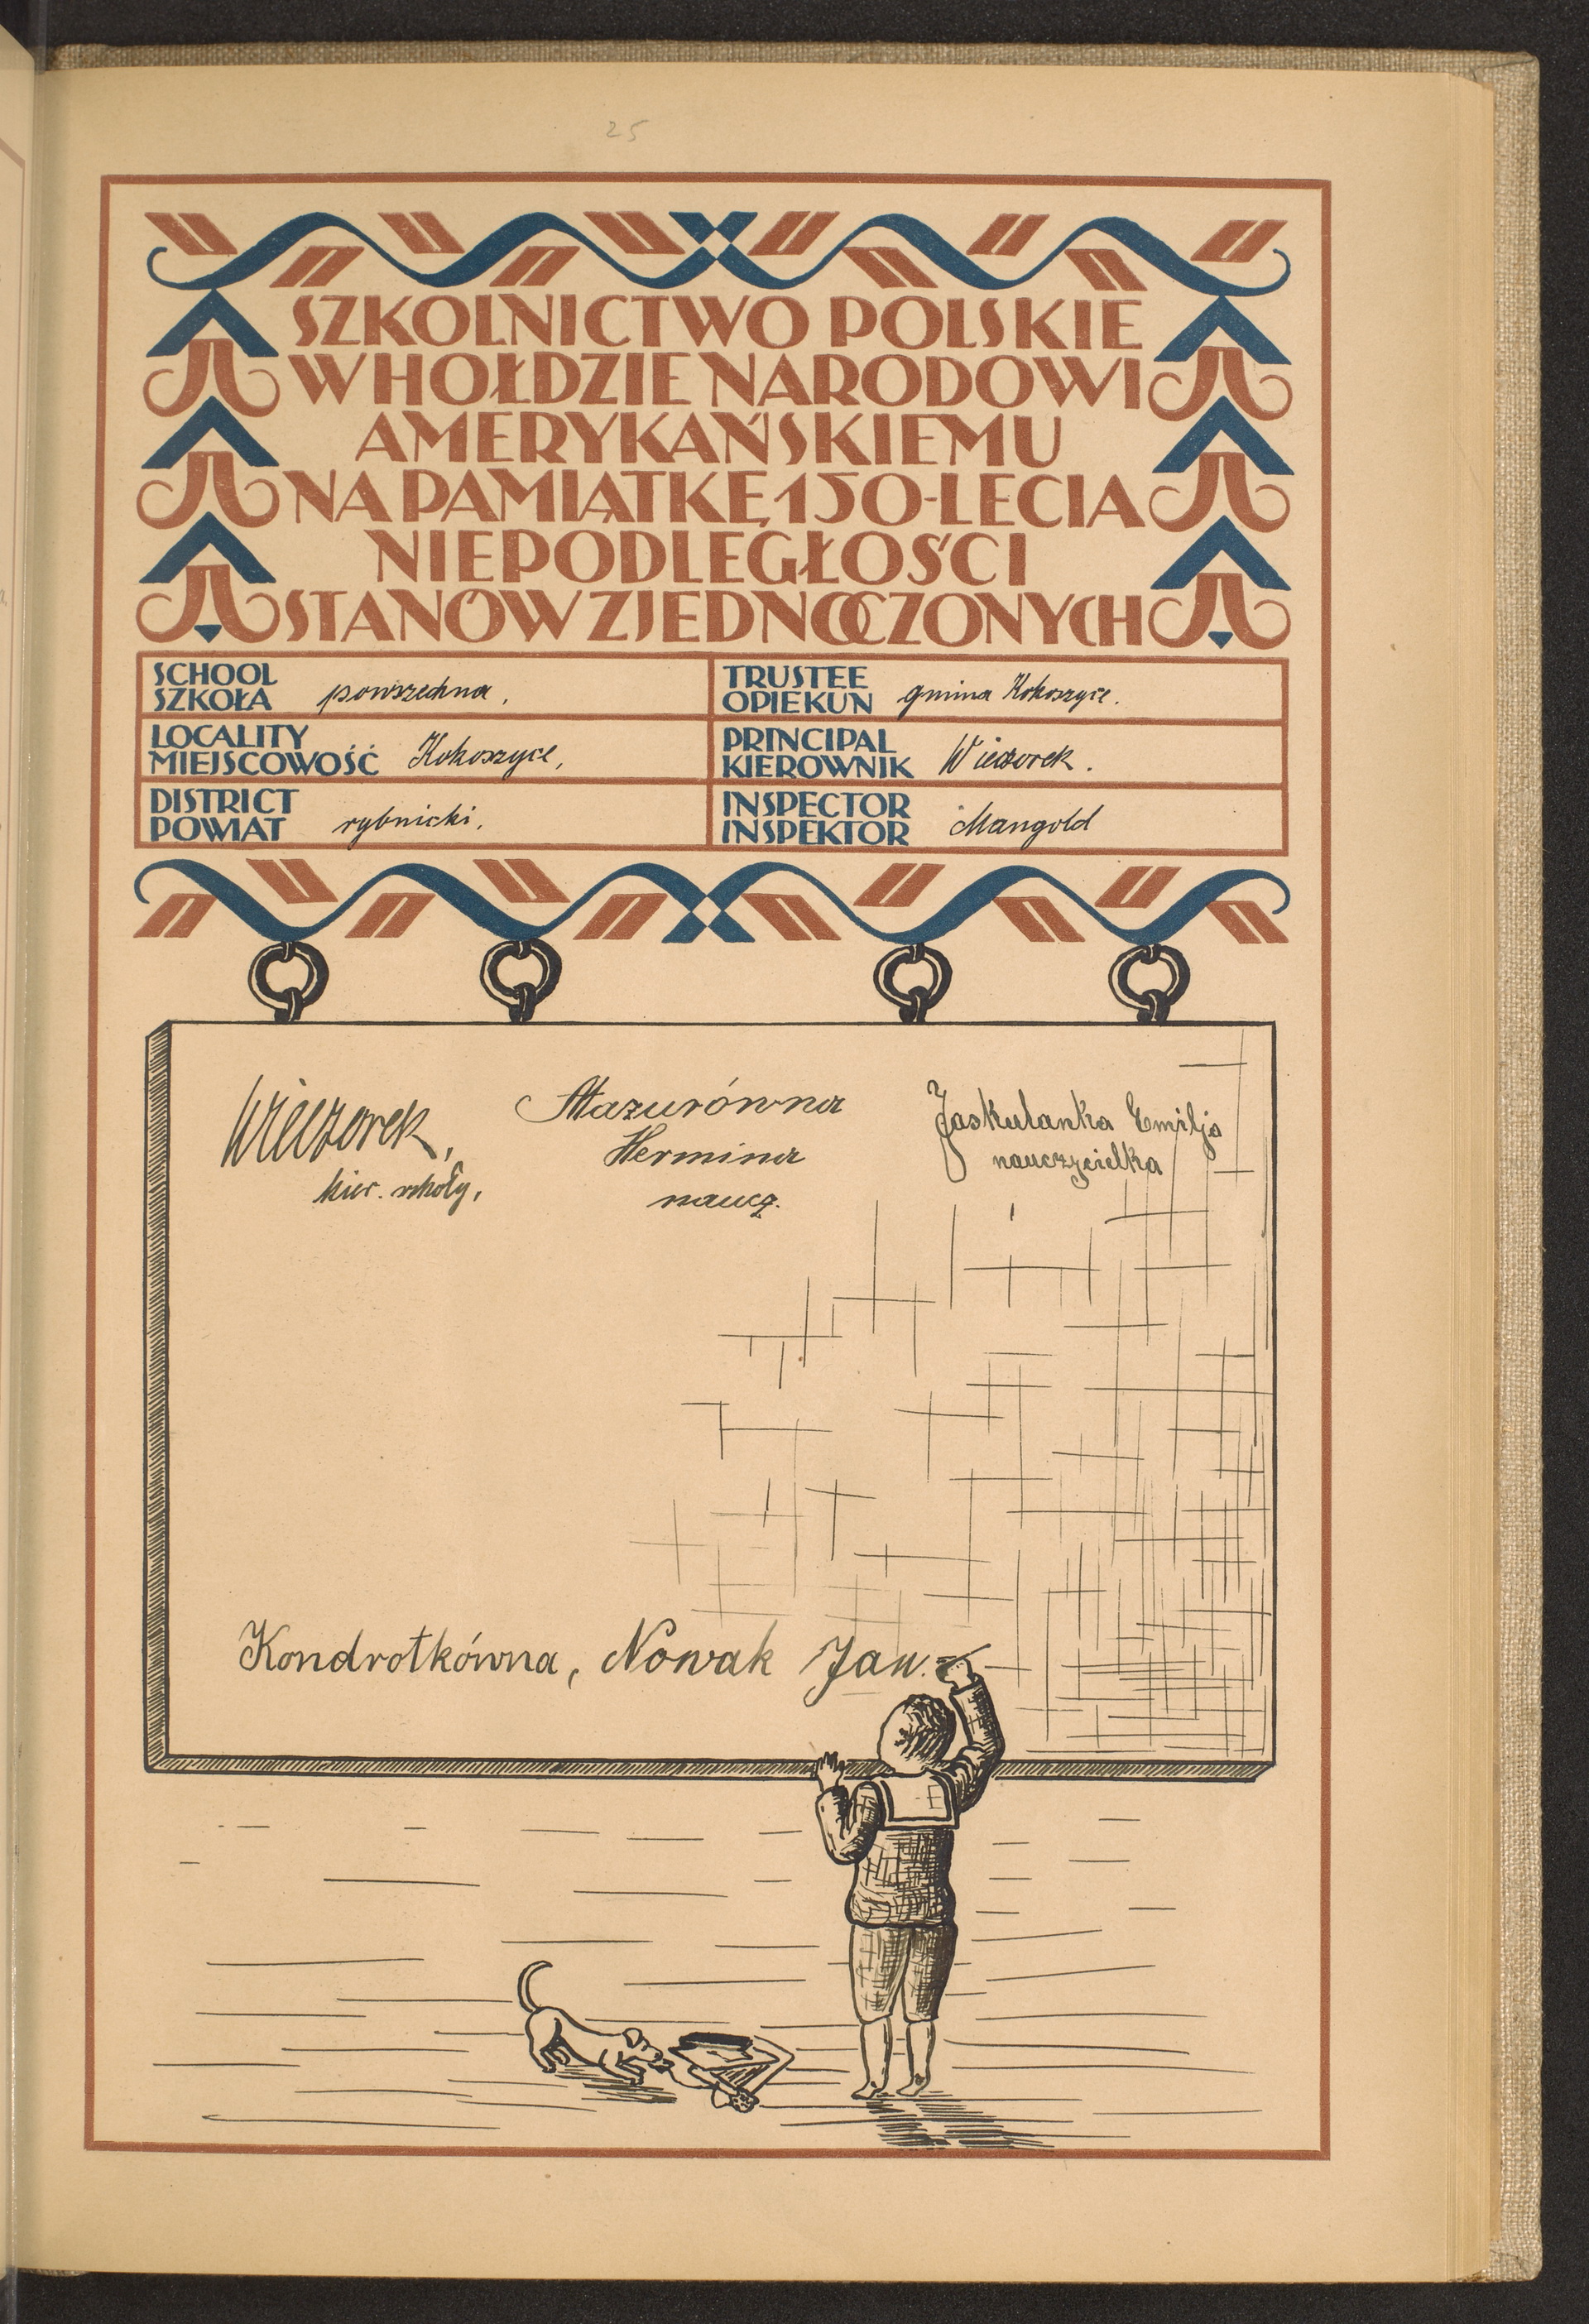 25
SZKOLNICTWO POLSKIE
W HOŁDZIE NARODOWI
AMERYKAŃSKIEMU
NA PAMIĄTKĘ 150-LECIA
NIEPODLEGŁOŚCI
STANÓW ZJEDNOCZONYCH
SCHOOL
SZKOŁA powszechna.
TRUSTEE
OPIEKUN gmina Kokoszyce.
LOCALITY
MIEJSCOWOŚĆ Kokoszyce,
PRINCIPAL
KIEROWNIK Wieczorek.
DISTRICT
POWIAT rybnicki.
INSPECTOR
INSPEKTOR Mangold
Wieczorek,
kier. szkoły,
Mazurówna
Hermina
naucz.
Jaskulanka Emilja
nauczycielka
Kondrotkówna, Nowak Jan.